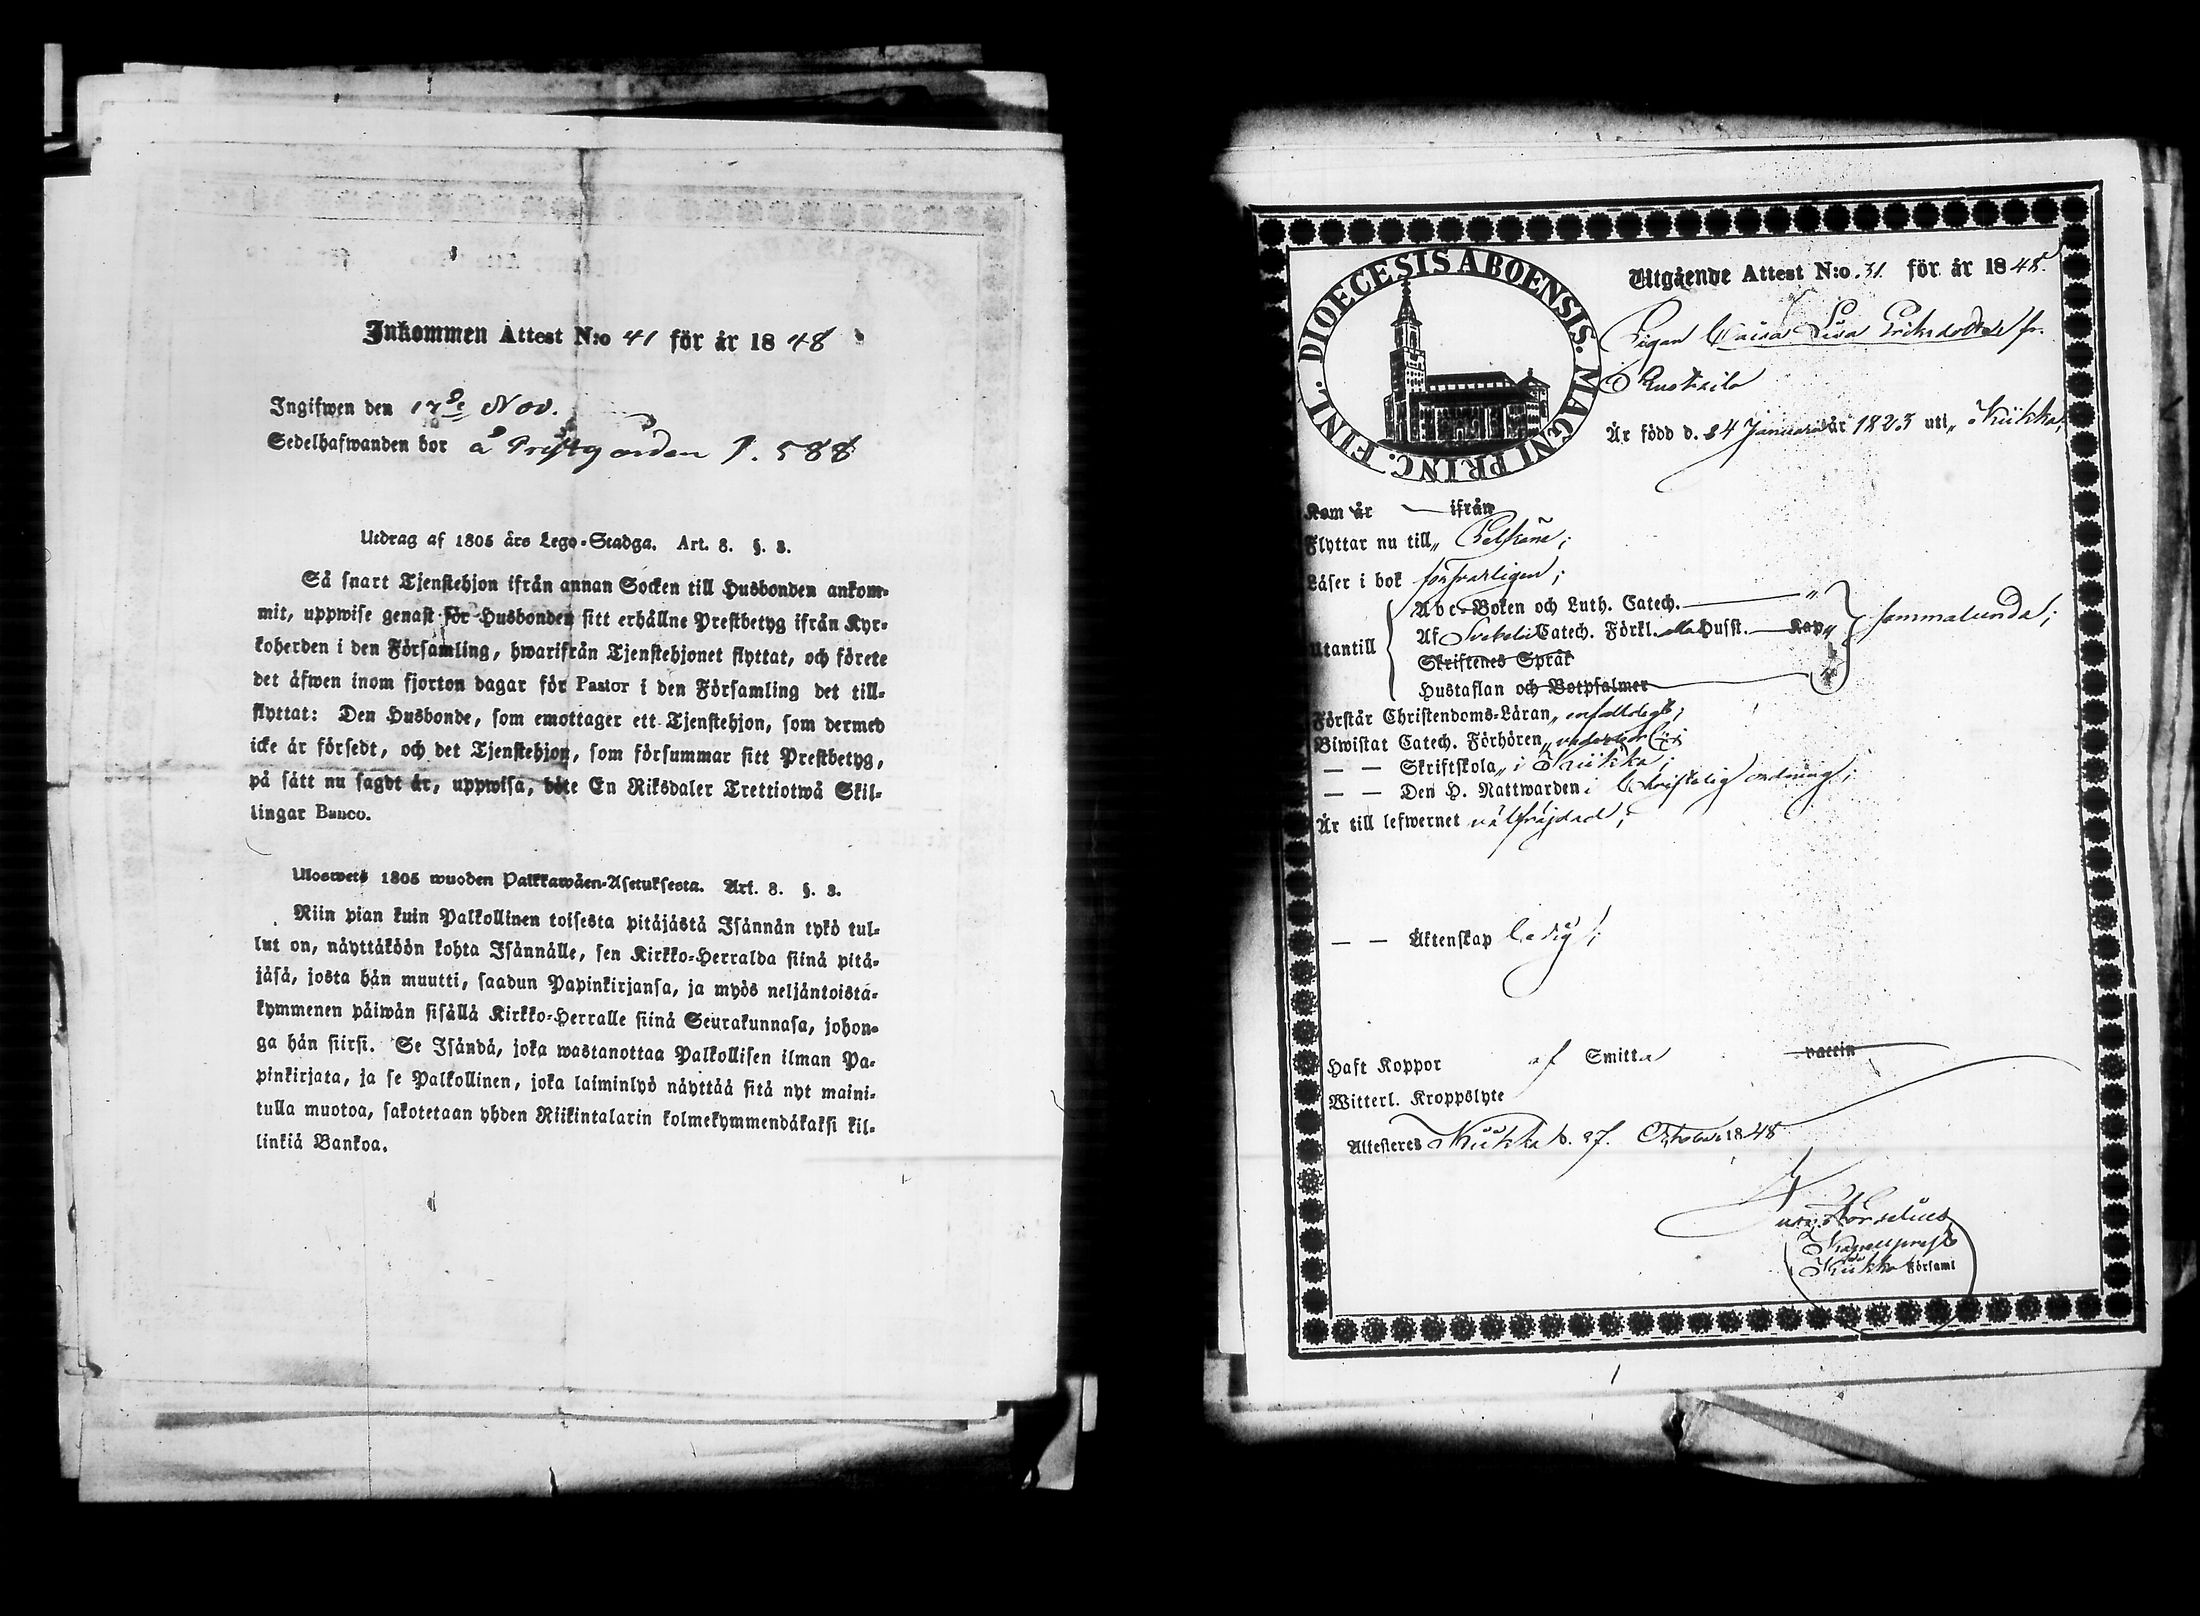 Inkommen Attest N:o 41 för år 1848
Ingifwen den 17de Nov.
Sedelhafwanden bor å Prestgården P. 588
Utdrag af 1805 års Lego-Stadga. Art. 8. §. 3.
Så snart Tjenstehjon ifrån annan Socken till Husbonden ankom-
mit, uppwise genast för Husbonden sitt erhållne Prestbetyg ifrån Kyr-
koherden i den Församling, hwarifrån Tjenstehjonet flyttat, och förete
det äfwen inom fjorton dagar för Pastor i den Församling det till-
flyttat: Den Husbonde, som emottager ett Tjenstehjon, som dermed
icke är försedt, och det Tjenstehjon, som försummar sitt Prestbetyg,
på sätt nu sagdt är, uppwisa, böte En Riksdaler Trettiotwå Skil-
lingar Banco.
Uloswets 1805 wuoden Palkkawäen-Asetuksesta. Art. 8. §. 3.
Niin pian kuin Palkollinen toisesta pitäjästä Isännän tykö tul-
lut on, näyttäköön kohta Isännälle, sen Kirkko-Herralda siinä pitä-
jäsä, josta hän muutti, saadun Papinkirjansa, ja myös neljäntoista-
kymmenen päiwän sisällä Kirkko-Herralle siinä Seurakunnasa, johon-
ga hän siirsi. Se Isändä, joka wastanottaa Palkollisen ilman Pa-
pinkirjata, ja se Palkollinen, joka laiminlyö näyttää sitä nyt maini-
tulla muotoa, sakotetaan yhden Riikintalarin kolmekymmendäkaksi kil-
linkiä Bankoa.
DIOECESIS ABOENSIS. MAGNI PRINC. FINL.
Utgående Attest N:o 31. för år 1848.
Pigan Caisa Lisa Eriksdotter fr.
Anttila
Är född d. 24 Januari år 1823 uti Kiikka;
Kom år — ifrån
Flyttar nu till Pelkäne;
Läser i bok försvarligen;
Utantill
Abc-Boken och Luth. Catech. — "
Af Svebeli Catech. Förkl. Husst. — Kap
sammalunda;
Skriftenes Språk
Hustaflan och Botpsalmer
Förstår Christendoms-Läran enfaldeligt;
Biwistat Catech. Förhören
— — Skriftskola i Kiikka;
— — Den H. Nattwarden i Christelig ordning;
Är till lefwernet välfräjdad;
— — Äktenskap ledig;
Haft Koppor af Smitta vaccin
Witterl. Kroppslyte
Attesteres Kiikka d. 27. October 1848
Kapellpred.
Kiikka Församl